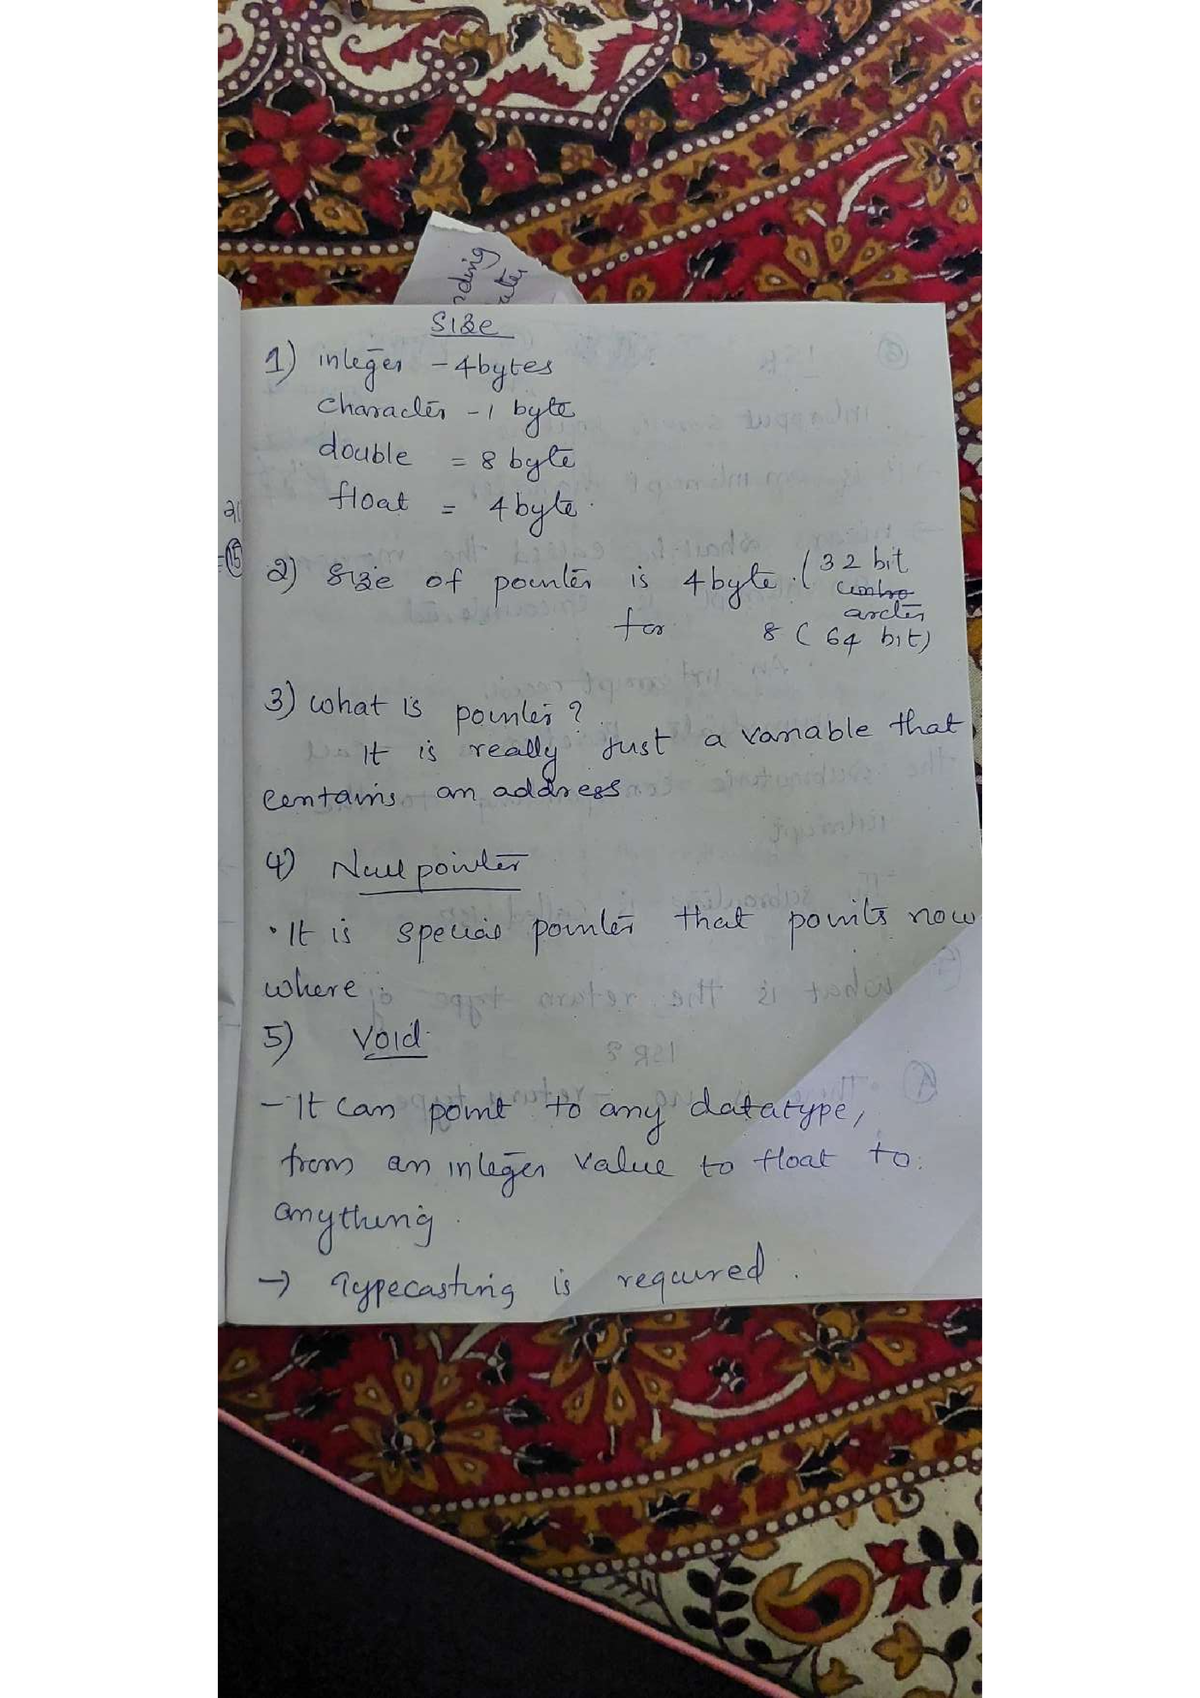 nding
Size
1) integer - 4bytes
character - 1 byte
double = 8 byte
float = 4 byte.
= 15
2) Size of pointer is 4 byte. ( 32 bit
for 8 ( 64 bit)
3) What is pointer?
It is really just a variable that
contains an address
4) Null pointer
• It is special pointer that points now
where.
5) Void
- It can point to any datatype,
from an integer value to float to
anything.
→ Typecasting is required.